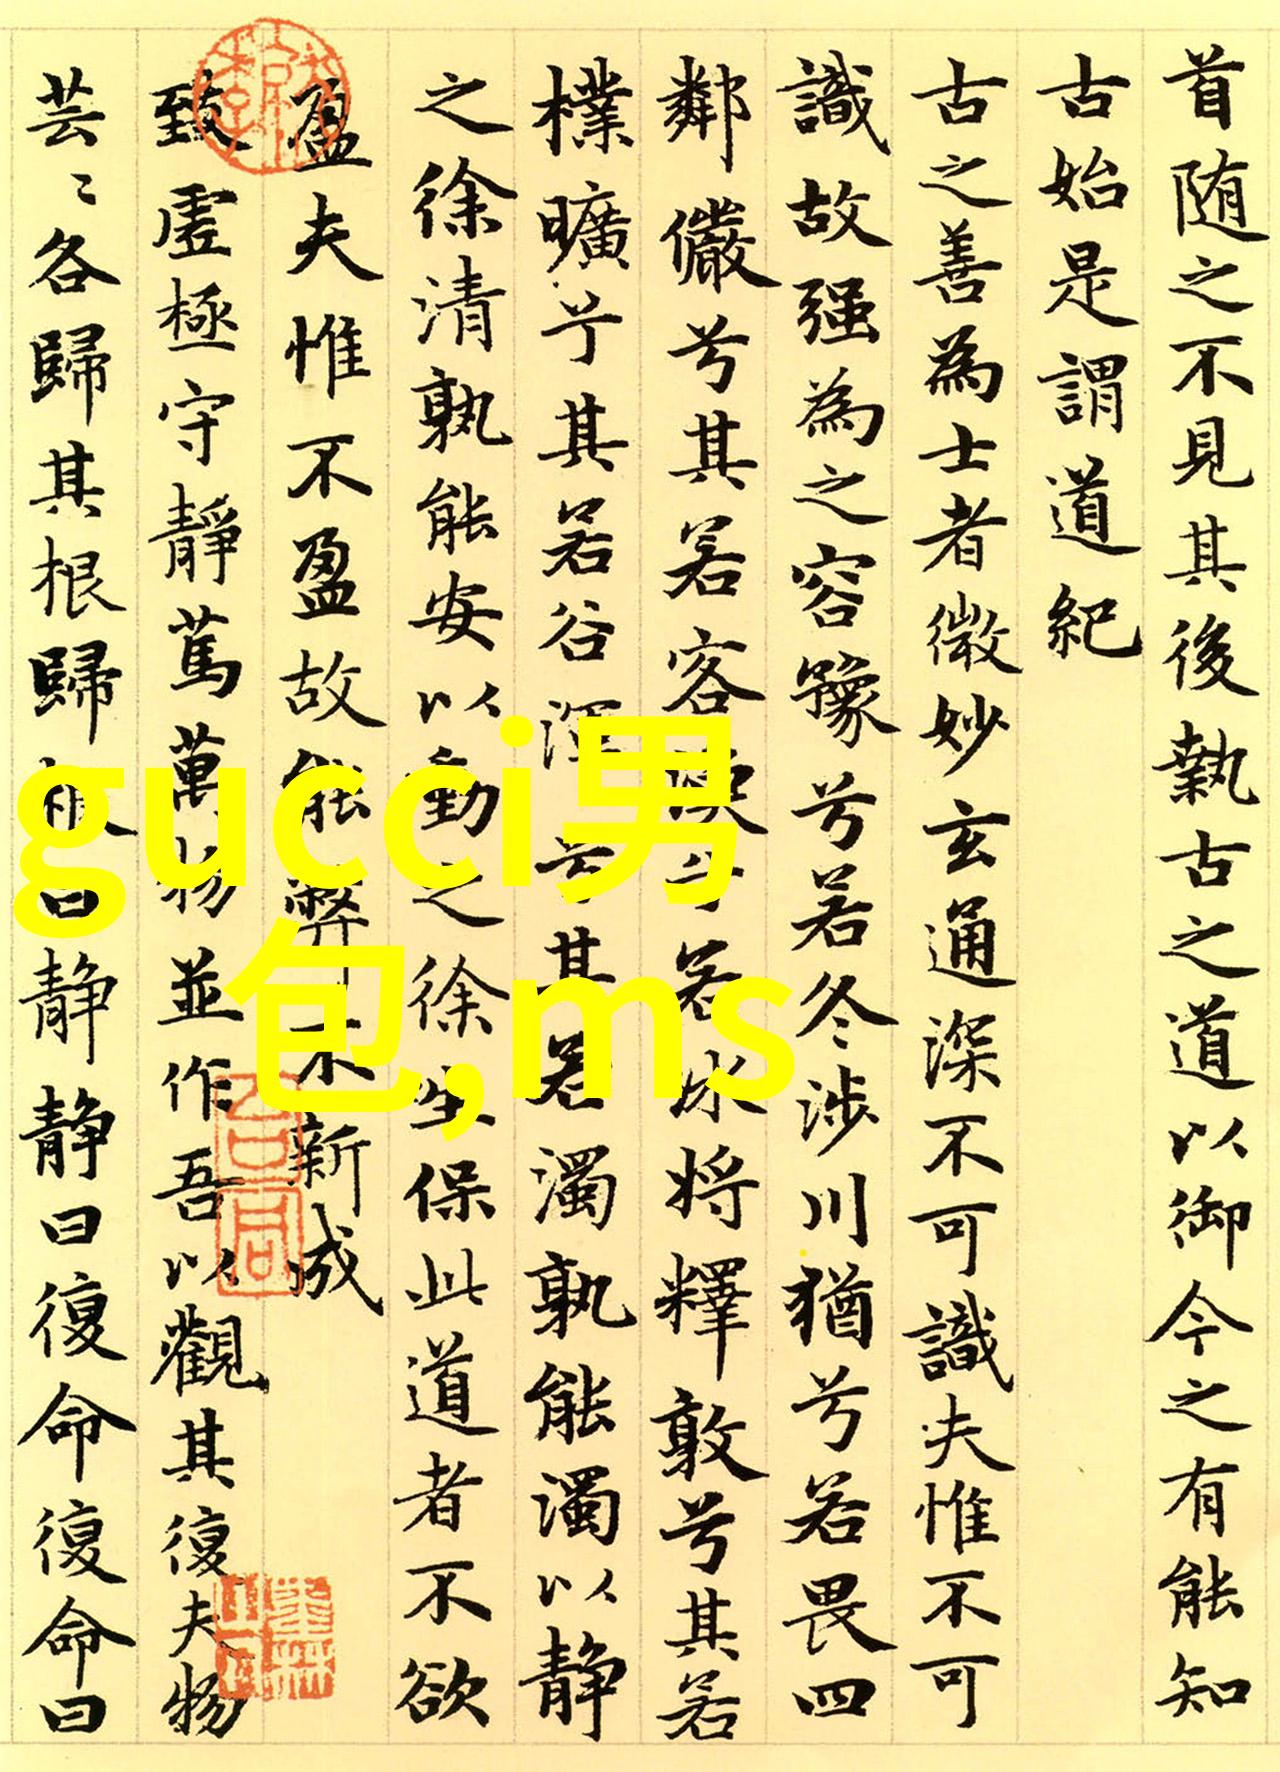 首随之不見其後執古之道以御今之有能知
古始是謂道紀
古之善為士者微妙玄通深不可識夫惟不可
識故强為之容豫兮若冬涉川猶兮若畏四
鄰儼兮其若客渙兮若冰將釋敦兮其若
樸曠兮其若谷渾兮其若濁孰能濁以静
之徐清孰能安以動之徐生保此道者不欲
盈夫惟不盈故能弊不新成
致虚極守靜篤萬物並作吾以觀其復夫物
芸〻各歸其根歸根曰静静曰復命復命曰
gucci男
包,ms